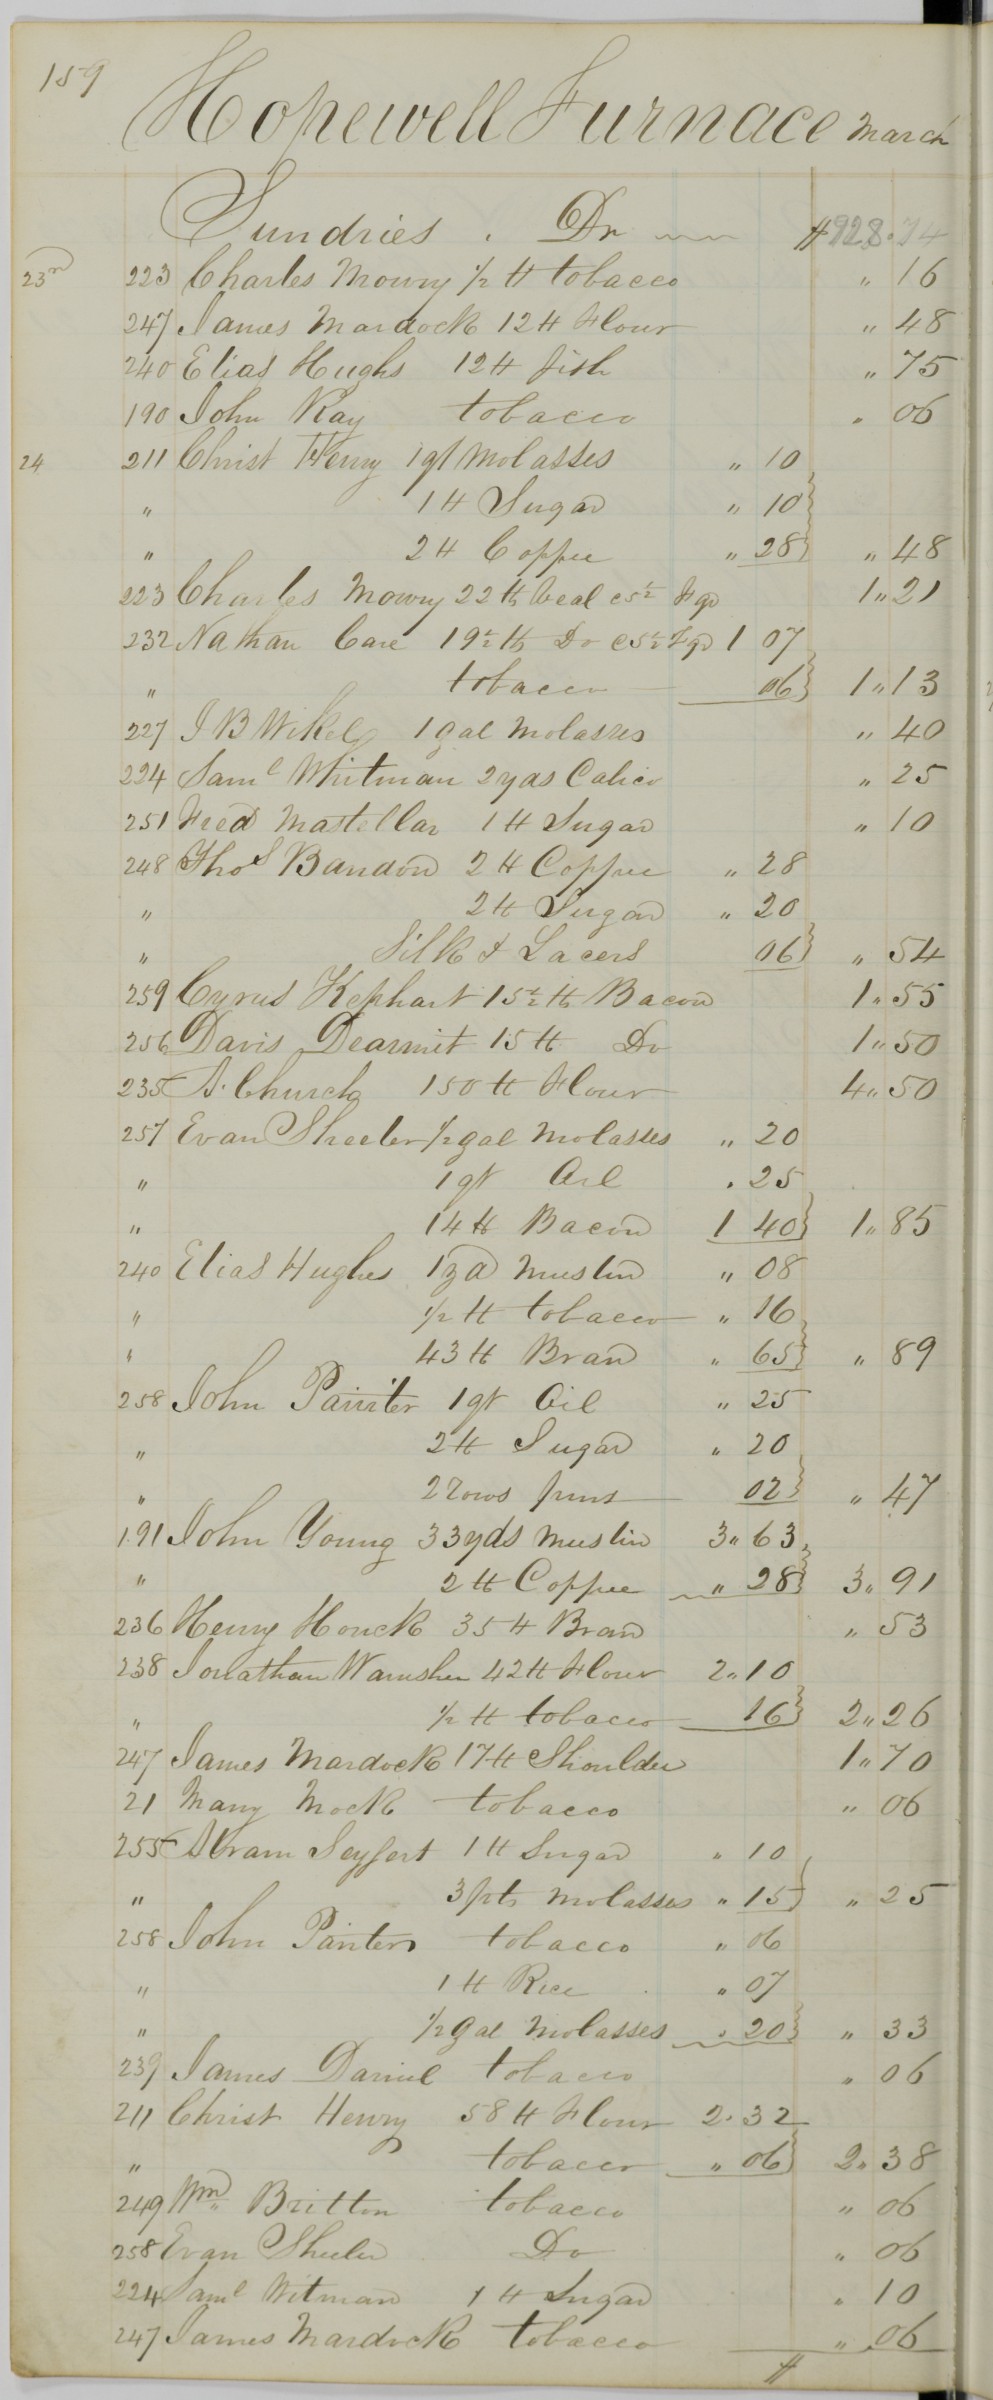 159
Hopewell Furnace March
Sundries . Dr $928.74
23rd 223 Charles Mowry 1/2 tt tobacco " 16
247 James Mardock 12 tt Flour " 48
240 Elias Hughs 12 tt fish " 75
190 John Kay tobacco " 06
24 211 Christ Henry 1 qt Molasses " 10
" 1 tt Sugar " 10
" 2 tt Coffee " 28 " 48
223 Charles Mowry 22 tt Veal c5 1/2 1 " 21
232 Nathan Care 19 1/2 tt Do c5 1/2 1 07
" tobacco 06 1 " 13
227 J B Wikel 1 gal Molasses " 40
224 Saml Whitman 2 yds Calico " 25
251 Fred Mastellar 1 tt Sugar " 10
248 Thos Bandon 2 tt Coffee " 28
" 2 tt Sugar " 20
" Silk & Lacers 06 " 54
259 Cyrus Kephart 15 1/2 tt Bacon 1 " 55
256 Davis Dearmit 15 tt Do 1 " 50
235 A. Church 150 tt Flour 4 " 50
257 Evan Sheeler 1/2 gal Molasses " 20
" 1 qt Oil . 25
" 14 tt Bacon 1 40 1 " 85
240 Elias Hughes 1 yd Muslin " 08
" 1/2 tt tobacco " 16
" 43 tt Bran " 65 " 89
258 John Painter 1 qt Oil " 25
" 2 tt Sugar " 20
" 2 rows pins 02 " 47
191 John Young 33 yds Muslin 3 " 63
" 2 tt Coffee " 28 3 " 91
236 Henry Houck 35 tt Bran " 53
238 Jonathan Wamsher 42 tt Flour 2 " 10
" 1/2 tt tobacco 16 2 " 26
247 James Mardock 17 tt Shoulder 1 " 70
21 Many Mock tobacco " 06
255 Abram Seyfert 1 tt Sugar " 10
" 3 pts Molasses " 15 " 25
258 John Painter tobacco " 06
" 1 tt Rice " 07
" 1/2 gal Molasses . 20 " 33
239 James Daniel tobacco " 06
211 Christ Henry 58 tt Flour 2 . 32
" tobacco " 06 2 " 38
249 Wm Britton tobacco " 06
258 Evan Sheeler Do " 06
224 Saml Witman 1 tt Sugar " 10
247 James Mardock tobacco " 06
$